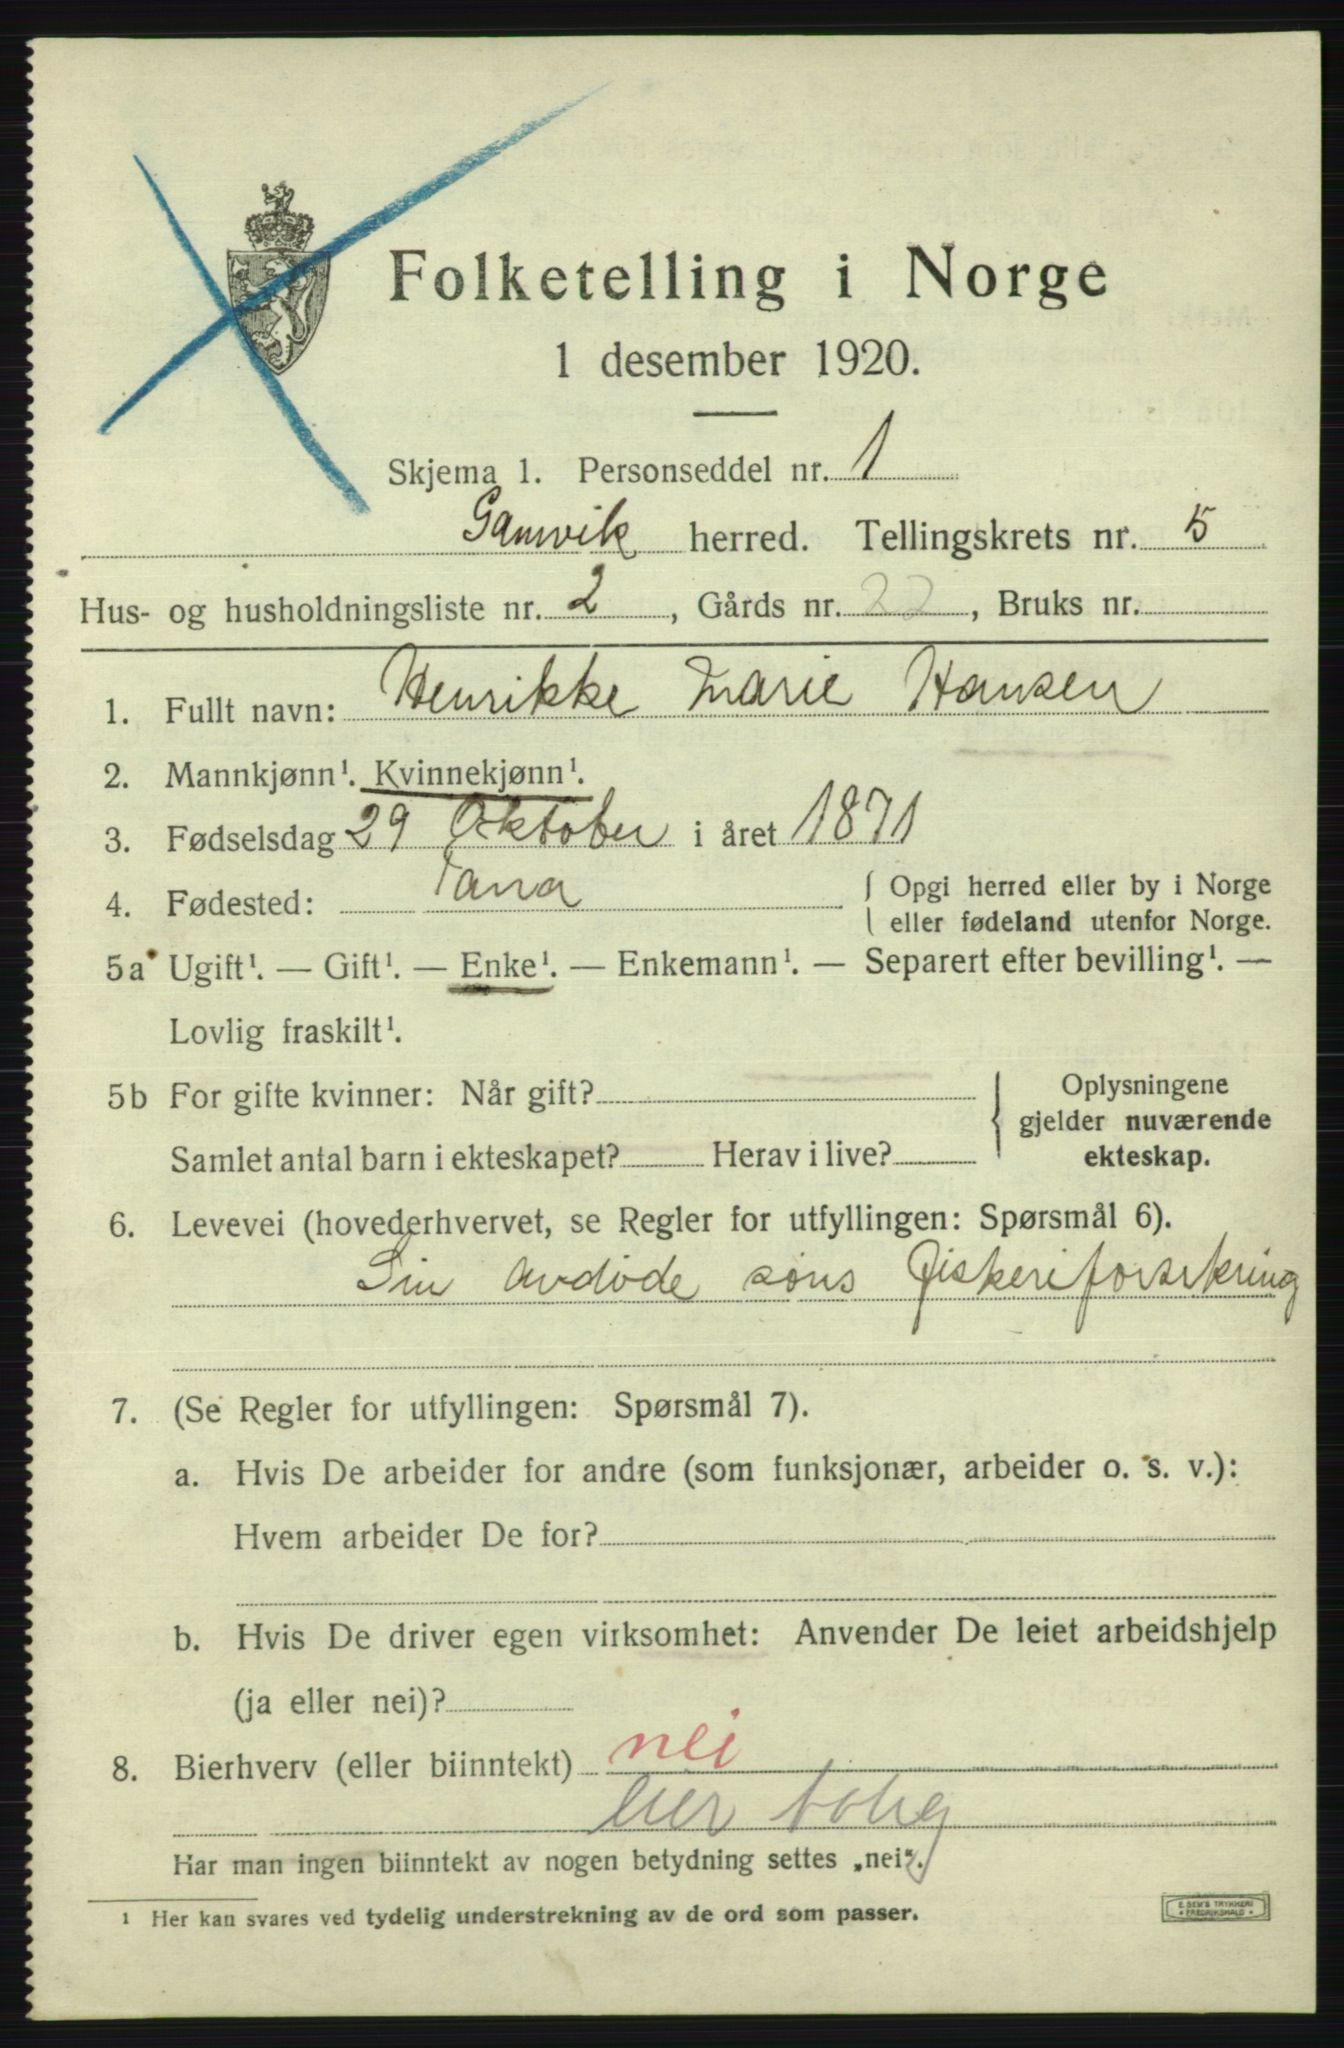 Folketelling i Norge
1 desember 1920.
Skjema 1. Personseddel nr. 1
Gamvik herred. Tellingskrets nr. 5
Hus- og husholdningsliste nr. 2, Gårds nr. 22, Bruks nr.
1. Fullt navn: Henrikke Marie Hansen
2. Mannkjønn¹. Kvinnekjønn¹.
3. Fødselsdag 29 Oktober i året 1871
4. Fødested: Tana { Opgi herred eller by i Norge
eller fødeland utenfor Norge.
5a Ugift¹. — Gift¹. — Enke¹. — Enkemann¹. — Separert efter bevilling¹. —
Lovlig fraskilt¹.
5b For gifte kvinner: Når gift? { Oplysningene
gjelder nuværende
Samlet antal barn i ekteskapet? Herav i live? ekteskap.
6. Levevei (hovederhvervet, se Regler for utfyllingen: Spørsmål 6).
Sin avdøde søns Fiskeriforsikring
7. (Se Regler for utfyllingen: Spørsmål 7).
a. Hvis De arbeider for andre (som funksjonær, arbeider o. s. v.):
Hvem arbeider De for?
b. Hvis De driver egen virksomhet: Anvender De leiet arbeidshjelp
(ja eller nei)?
8. Bierhverv (eller biinntekt) nei
eier bolig
Har man ingen biinntekt av nogen betydning settes „nei“.
¹ Her kan svares ved tydelig understrekning av de ord som passer.
E. SEM'S TRYKKERI
FREDRIKSHALD